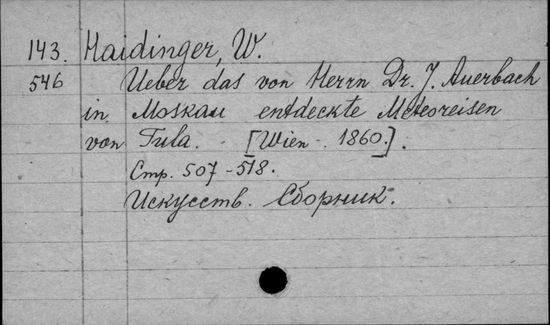 143. Haidinger, W.
546 Ueber das von Herrn Dr. J. Auerbach
in Moskau entdeckte Meteoreisen
von Tula. - [Wien - 1860.].
Стр. 507-518.
Искусств. Сборник.